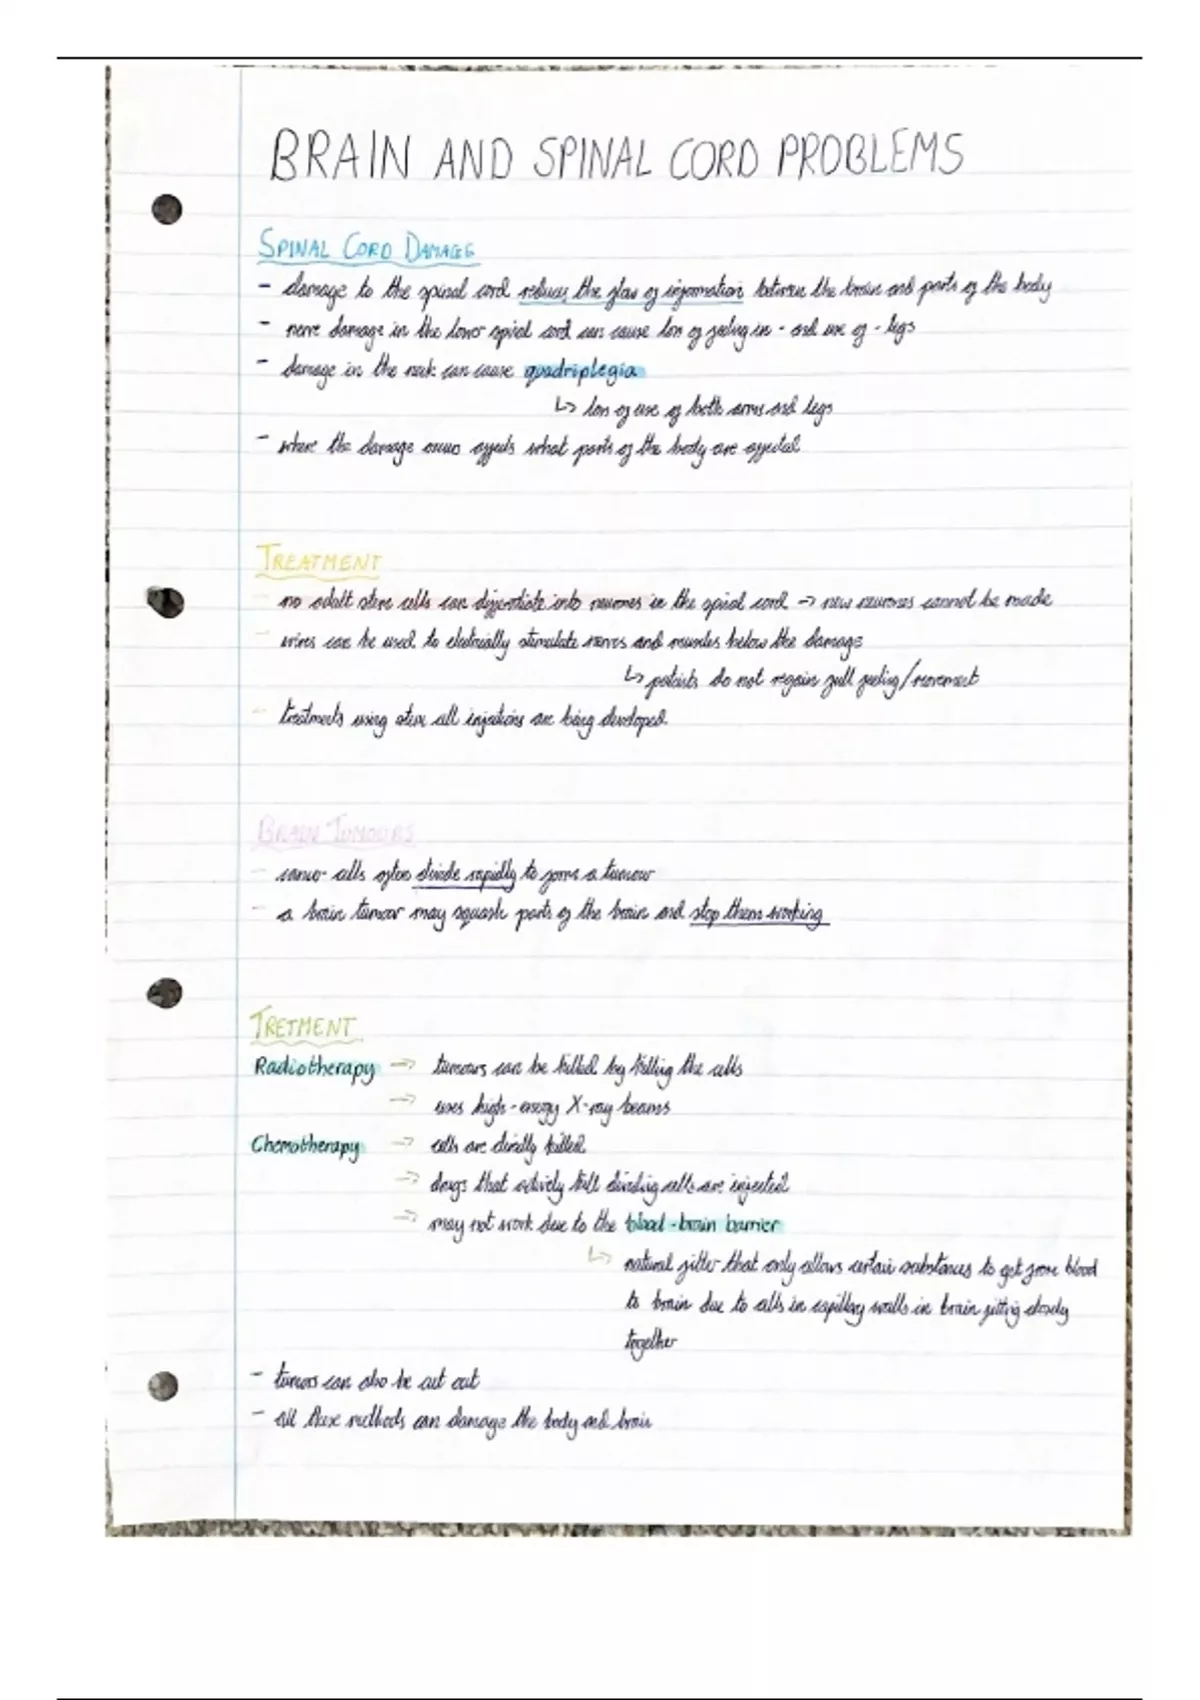 BRAIN AND SPINAL CORD PROBLEMS
SPINAL CORD DAMAGE
- damage to the spinal cord reduces the flow of information between the brain and parts of the body
- nerve damage in the lower spinal cord can cause loss of feeling in - and use of - legs
- damage in the neck can cause quadriplegia
↳ loss of use of both arms and legs
- where the damage occurs affects what parts of the body are affected
TREATMENT
- no adult stem cells can differentiate into neurones in the spinal cord → new neurones cannot be made
- wires can be used to electrically stimulate nerves and muscles below the damage
↳ patients do not regain full feeling/movement
- treatments using stem cell injections are being developed
BRAIN TUMOURS
- cancer cells often divide rapidly to form a tumour
- a brain tumour may squash parts of the brain and stop them working
TRETMENT
Radiotherapy → tumours can be killed by killing the cells
→ uses high-energy X-ray beams
Chemotherapy → cells are directly killed
→ drugs that actively kill dividing cells are injected
→ may not work due to the blood-brain barrier
↳ natural filter that only allows certain substances to get from blood
to brain due to cells in capillary walls in brain fitting closely
together
- tumors can also be cut out
- all these methods can damage the body and brain